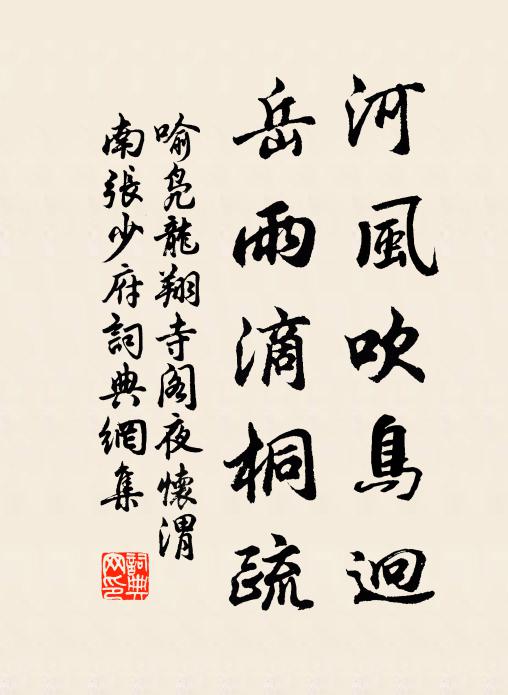 河風吹鳥迥
岳雨滴桐疏
喻鳧龍翔寺閣夜懷渭
南張少府詞典網集
詞典網印